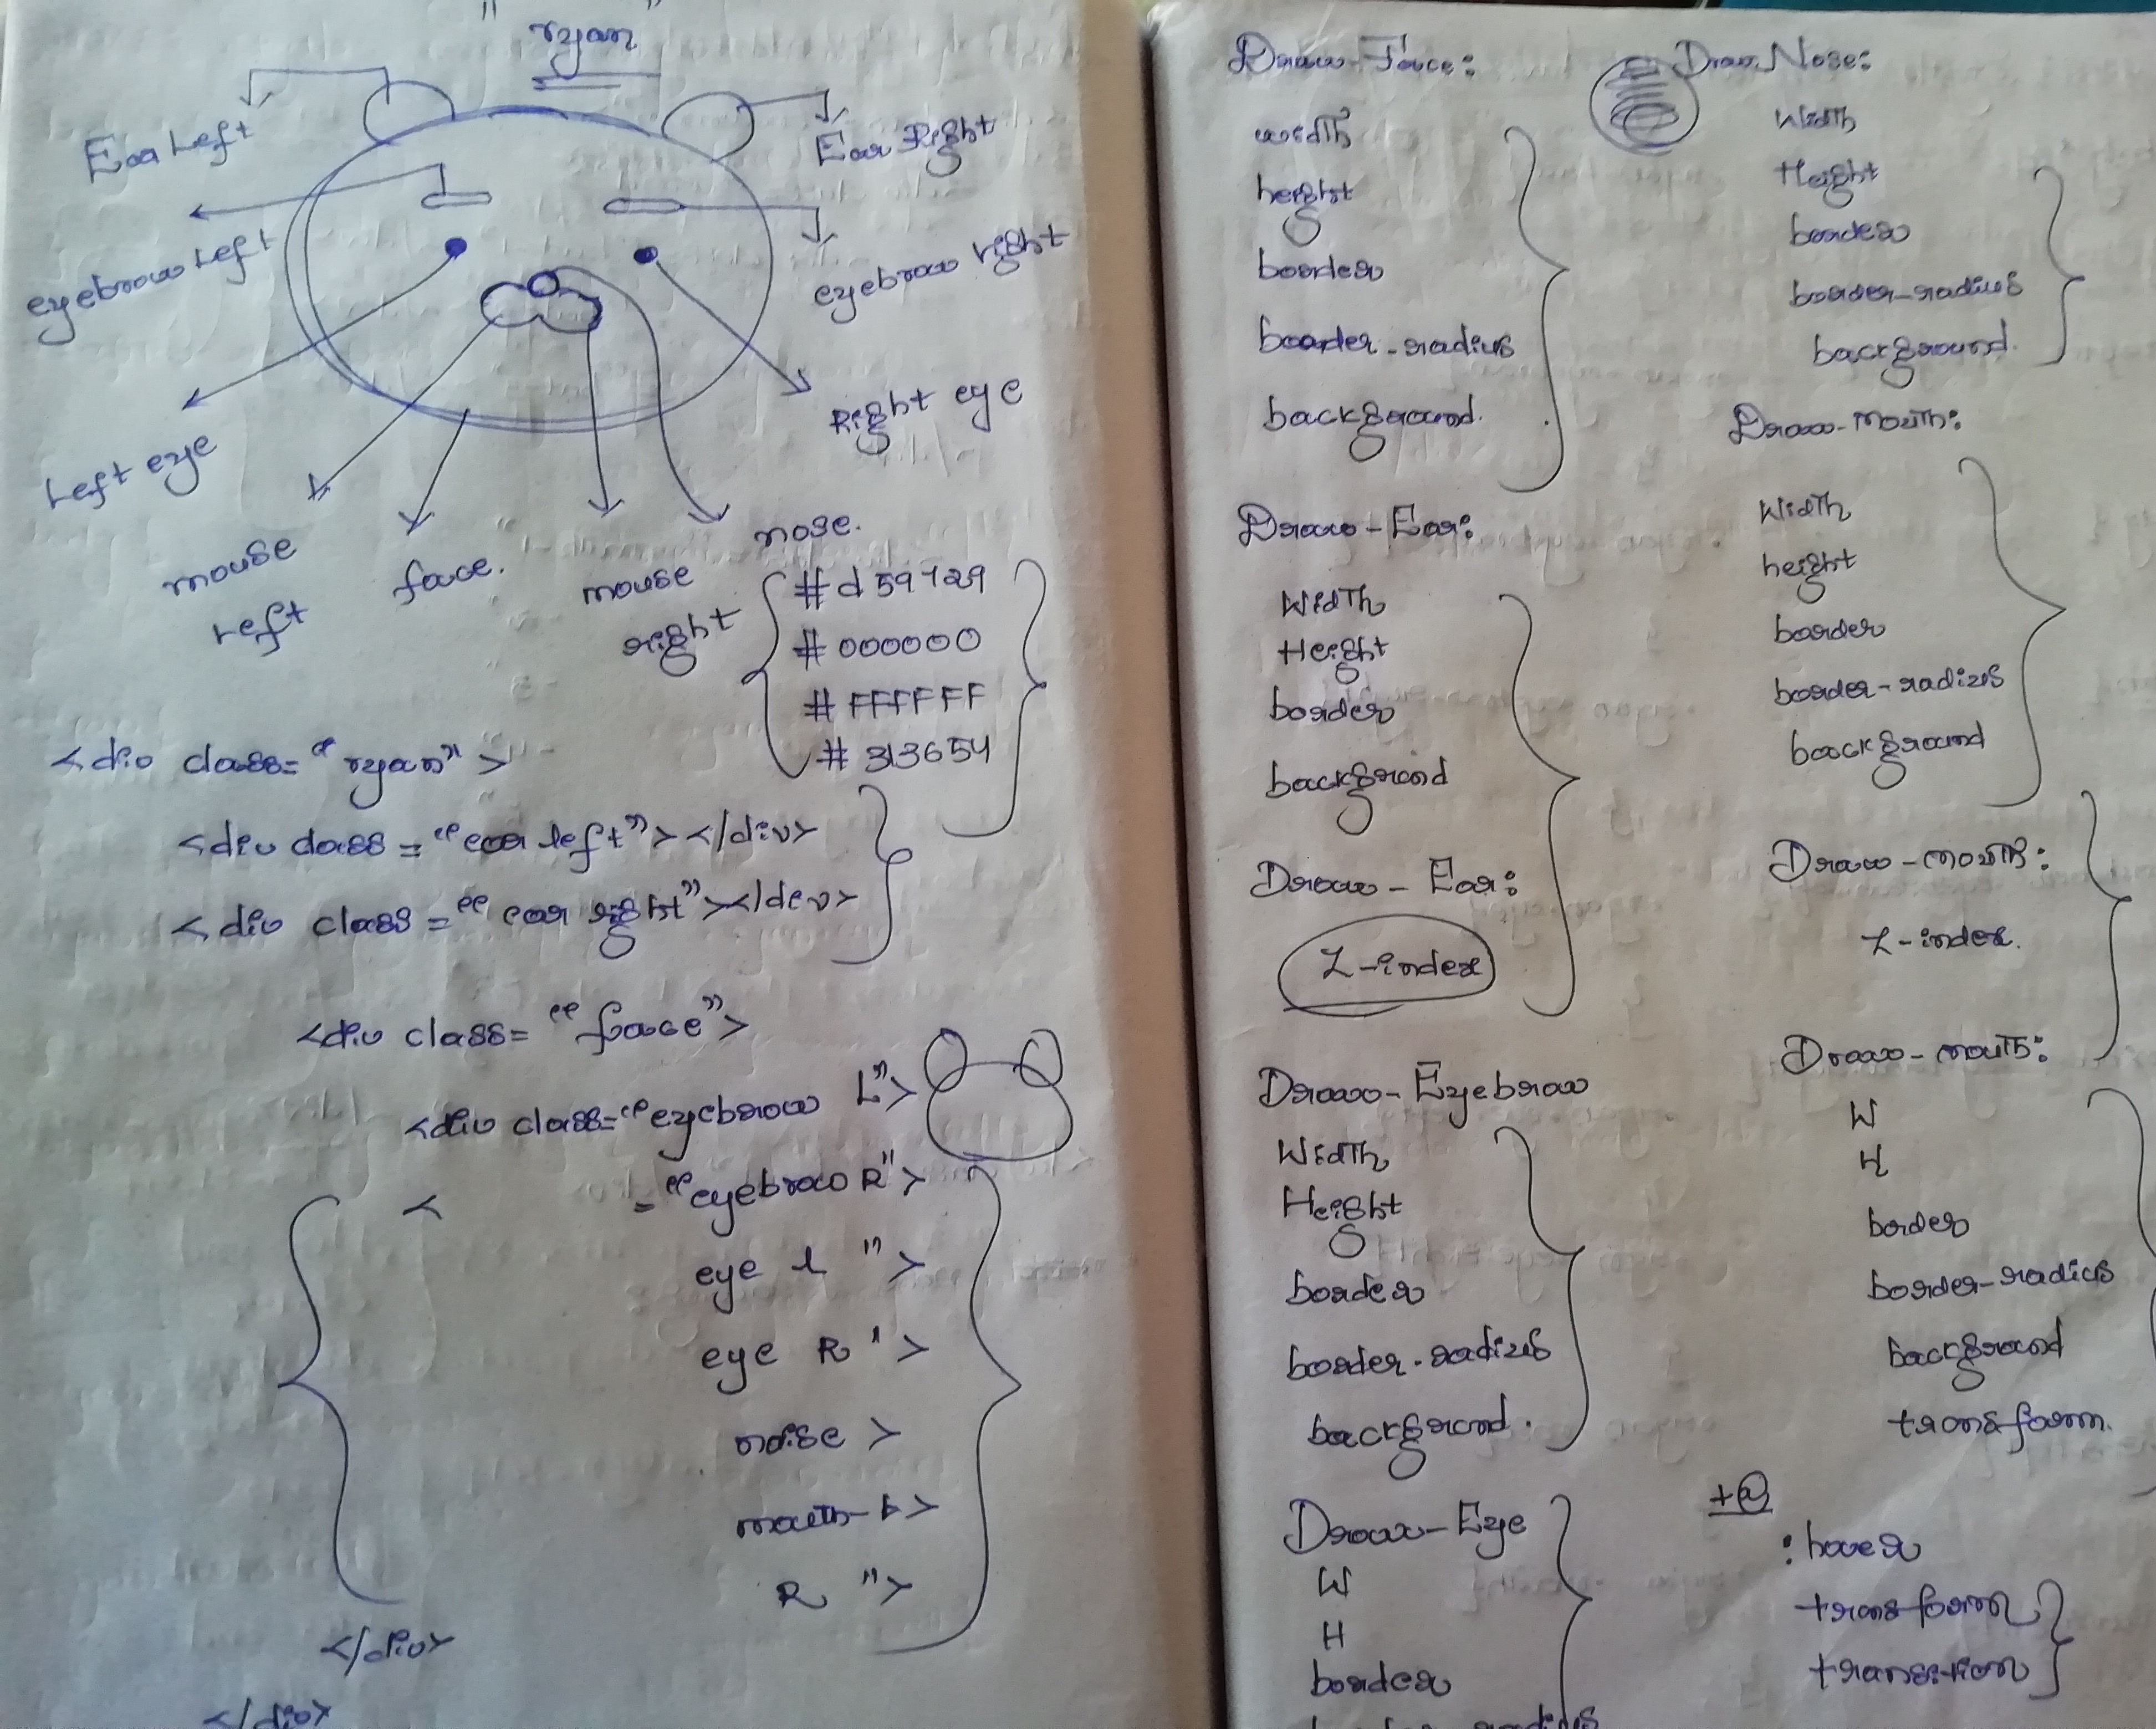 "ryan"
Ear Left
Ear Right
eyebrow Left
eyebrow right
Left eye
Right eye
mouse
left
face.
mouse
right
nose.
#d59729
#000000
#FFFFFF
#313654
<div class="ryan">
<div class="ear left"></div>
<div class="ear right"></div>
<div class="face">
<div class="eyebrow L">
< ="eyebrow R">
eye l ">
eye R ">
noise >
mouth-L>
R ">
</div>
</div>
Draw-Face:
width
height
border
boarder-radius
background.
Draw-Ear:
Width
Height
border
background
Draw-Ear:
Z-index
Draw-Eyebrow
Width
Height
border
border-radius
background.
Draw-Eye
W
H
border
border-radius
Draw Nose:
Width
Height
border
border-radius
background.
Draw-mouth:
Width
height
border
border-radius
background
Draw-mouth:
Z-index.
Draw-mouth:
W
H
border
border-radius
background
transform.
+@
:hover
transform
transition